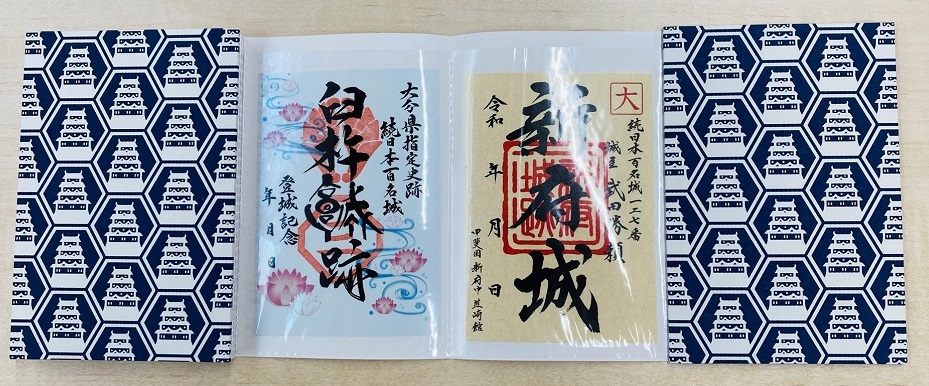 大分県指定史跡
続日本百名城
臼杵城跡
登城記念
年 月 日
大
続日本百名城一二七番
城主 武田勝頼
新府城
令和 年 月 日
甲斐国 新府中韮崎館